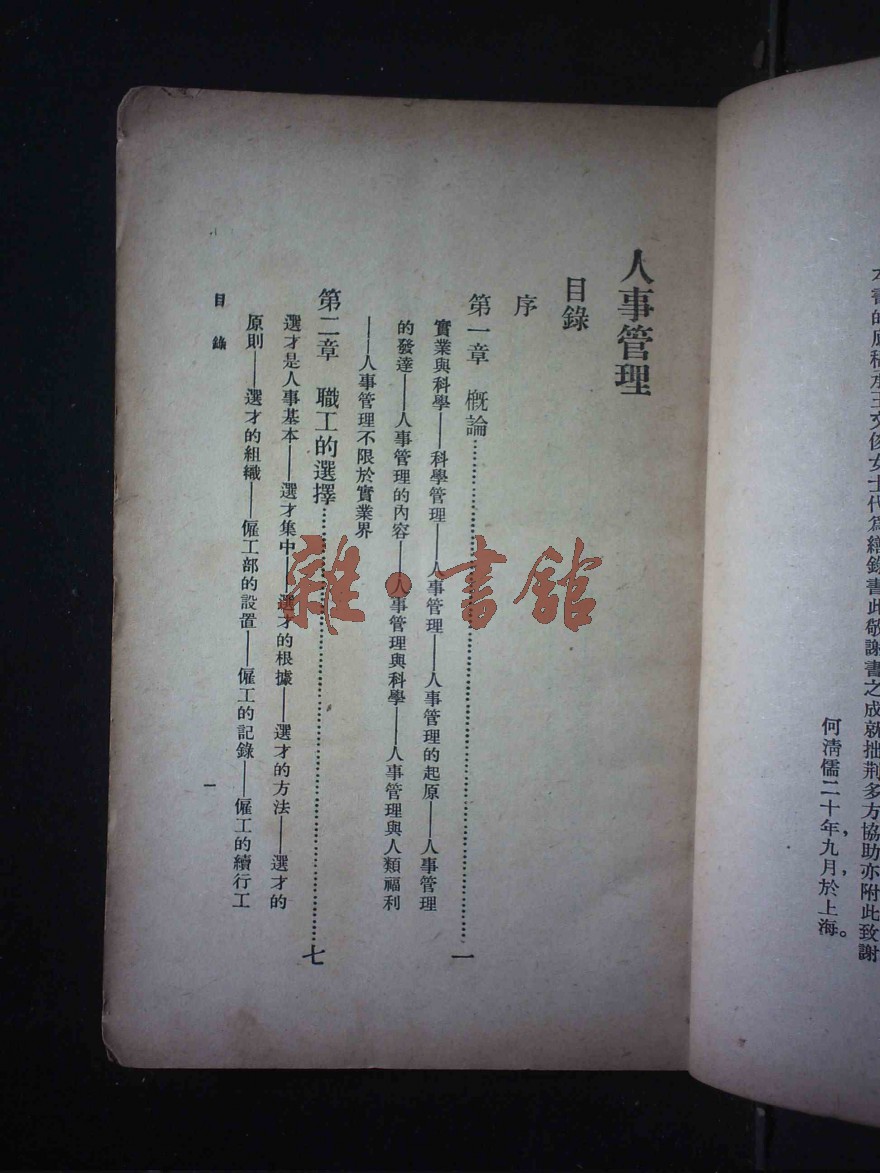 本書的底稿承王文俊女士代爲繕錄書此敬謝書之成就拙荆多方協助亦附此致謝
何清儒二十年，九月，於上海。
人事管理
目錄
序
第一章　概論……一
實業與科學——科學管理——人事管理——人事管理的起原——人事管理
的發達——人事管理的內容——人事管理與科學——人事管理與人類福利
——人事管理不限於實業界
第二章　職工的選擇……七
選才是人事基本——選才集中——選才的根據——選才的方法——選才的
原則——選才的組織——僱工部的設置——僱工的記錄——僱工的續行工
目錄
一
雜·書館